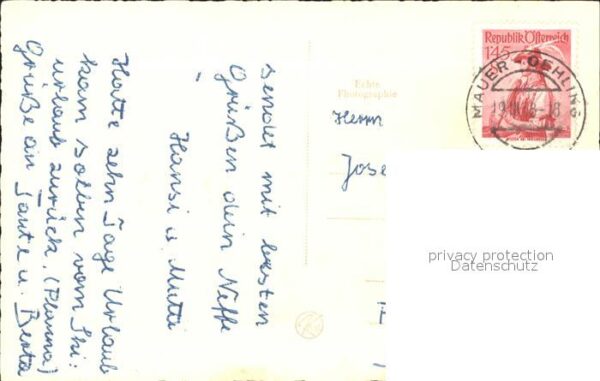 sendet mit besten
Grüßen dein Neffe
Hansi u. Mutti
Hatte zehn Tage Urlaub
kam soeben vom Ski:
urlaub zurück. (Planna)
Grüße an Tante u. Berta
Echte
Photographie
Herrn
Jose
Republik Österreich
1'45
MAUER - OEHLING
privacy protection
Datenschutz